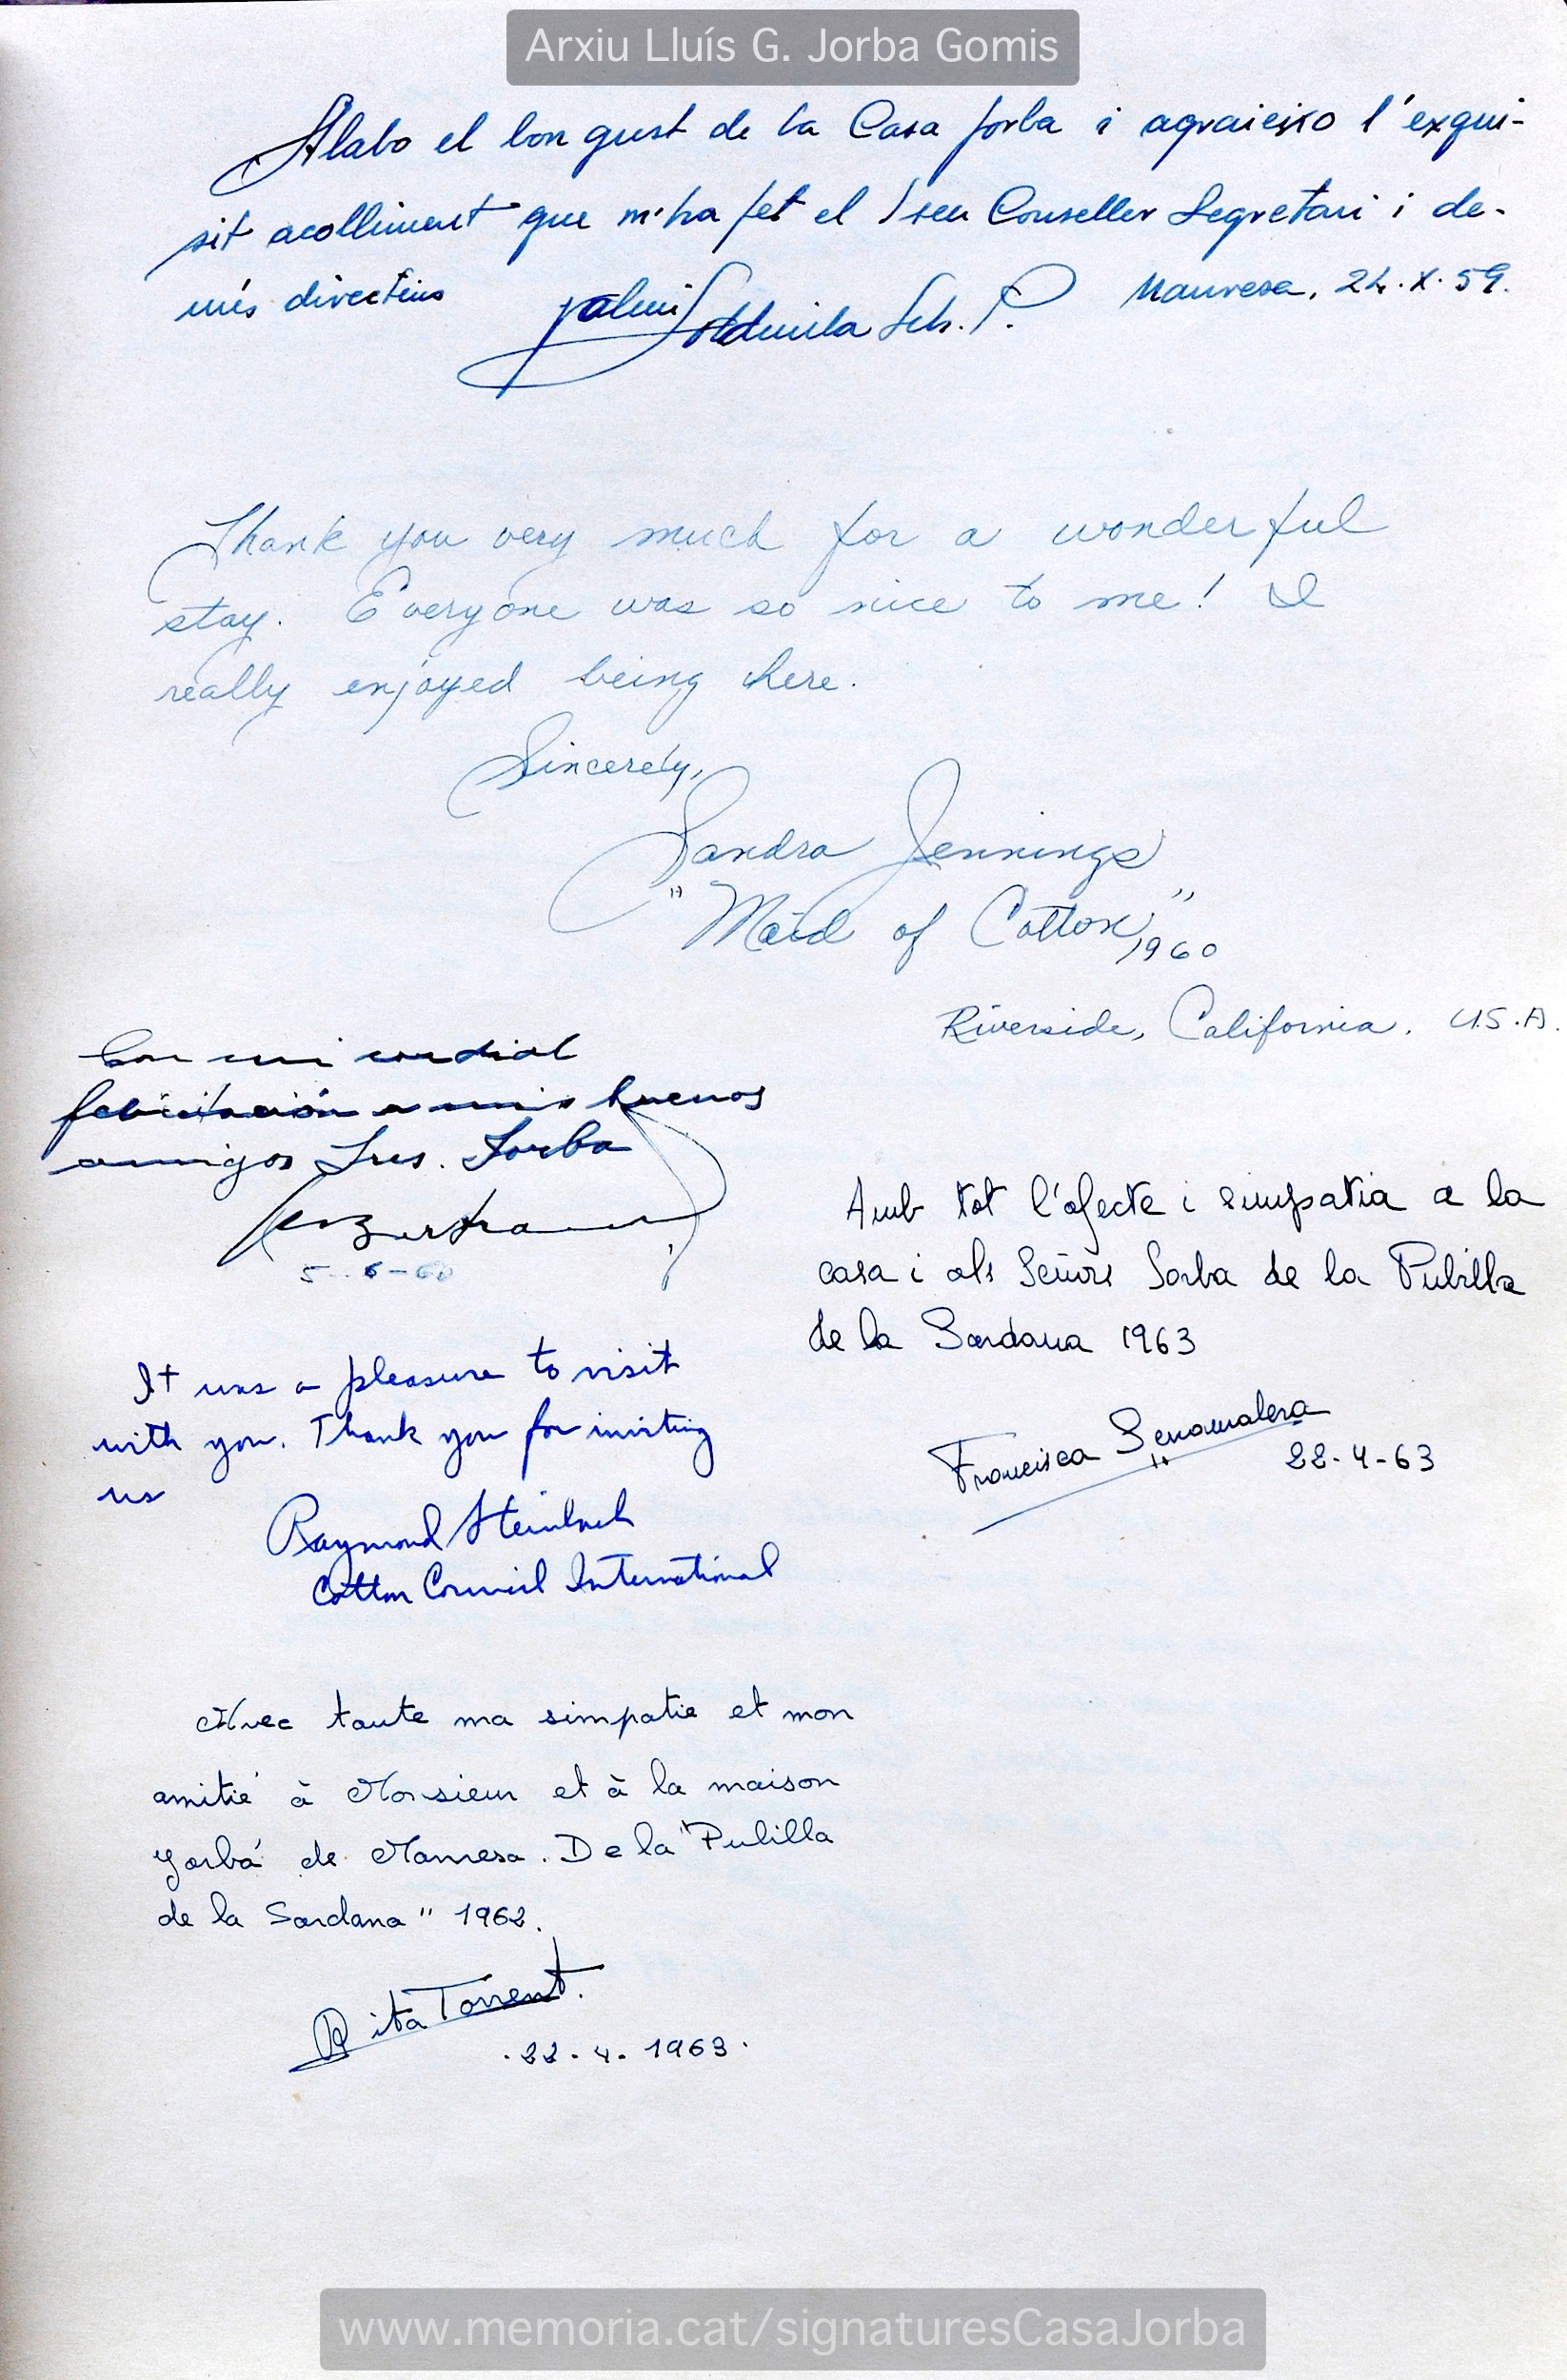 Arxiu Lluís G. Jorba Gomis
Alabo el bon gust de la Casa Jorba i agraieixo l'exqui-
sit acolliment que m'ha fet el seu Conseller Segretari i de-
més directius
Manresa, 24.X.59.
Thank you very much for a wonderful
stay. Everyone was so nice to me! I
really enjoyed being here.
Sincerely,
Sandra Jennings
"Maid of Cotton" 1960
Riverside, California. U.S.A.
Con mi cordial
felicitación a mis buenos
amigos Sres. Jorba
5-6-60
It was a pleasure to visit
with you. Thank you for inviting
us
Raymond
Cotton Council International
Amb tot l'afecte i simpatia a la
casa i als Senyors Jorba de la Pubilla
de la Sardana 1963
Francisca
22-4-63
Avec toute ma simpatie et mon
amitié à Monsieur et à la maison
Yorbá de Manresa. De la "Pubilla
de la Sardana" 1962.
Rita Torrent.
.22.4.1963.
www.memoria.cat/signaturesCasaJorba